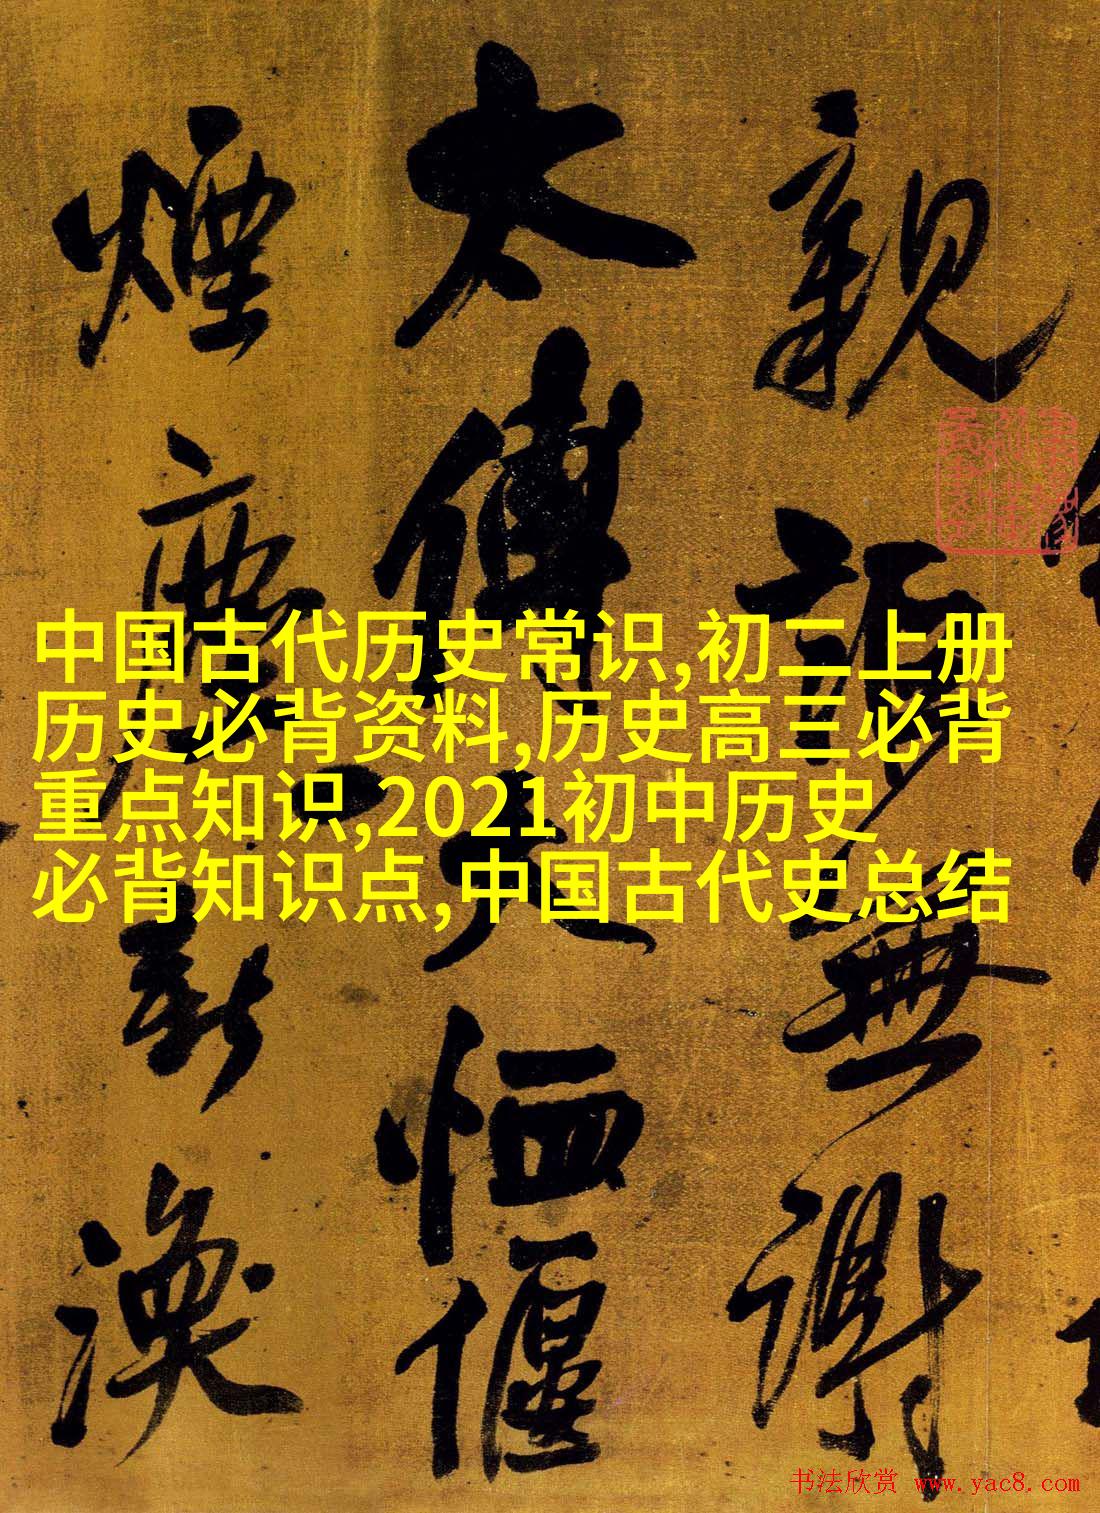 中国古代历史常识,初二上册
历史必背资料,历史高三必背
重点知识,2021初中历史
必背知识点,中国古代史总结
親無謝
太傅天恤偃
煙塵渙
书法欣赏 www.yac8.com